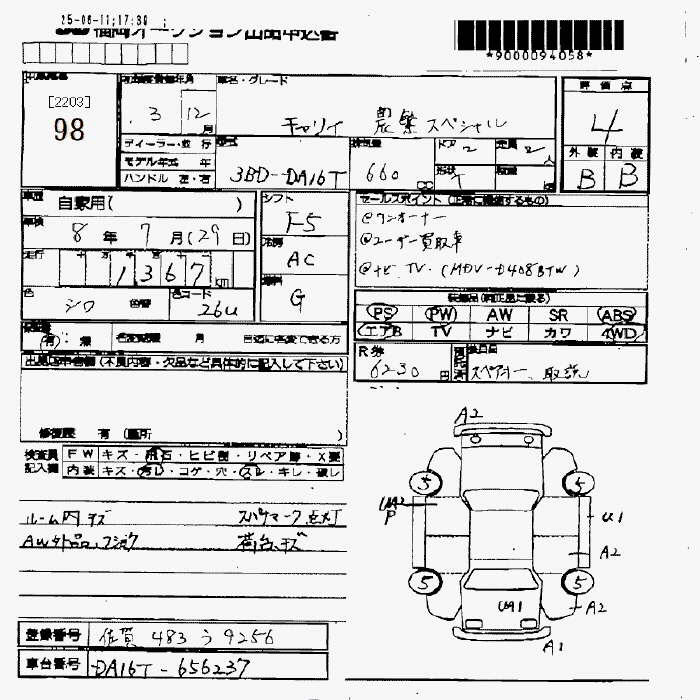 25-06-11;17:39 ;
福岡オークション出品申込書
*9000094058*
[2203]
98
初度登録年月
3 12月
車名・グレード
キャリイ 農繁スペシャル
評価点
4
外装 内装
B B
ディーラー・並行
モデル年式 年
ハンドル 左・右
型式
3BD-DA16T
排気量
660 cc
ドア 2
形状 T
定員 2人
車歴
自家用( )
車検
8年 7月(29日)
走行
十 万 千 百 十
1 3 6 7 km
色
シロ
色替
色コード
26U
シフト
F5
冷房
AC
燃料
G
セールスポイント(正常に機能するもの)
@ワンオーナー
@ユーザー買取車
@ナビ TV.(MDV-D408BTW)
装備品(純正品に限る)
PS PW AW SR ABS
エアB TV ナビ カワ 4WD
R券
6230円
スペアキー、取説
有・無
月
自認に名変できる方
出品店申告欄(不良内容・欠品など具体的に記入して下さい)
修復歴 有(箇所
検査員記入欄
FW キズ・飛石・ヒビ割・リペア跡・X要
内装 キズ・汚レ・コゲ・穴・スレ・キレ・破レ
ルーム内キズ スペアマーク点灯
AW外品、フショク 荷台、キズ
A2
5 5
UA2
P
U1
A2
5 5
UA1
A2
A1
登録番号 佐賀 483 う 9256
車台番号 DA16T-656237